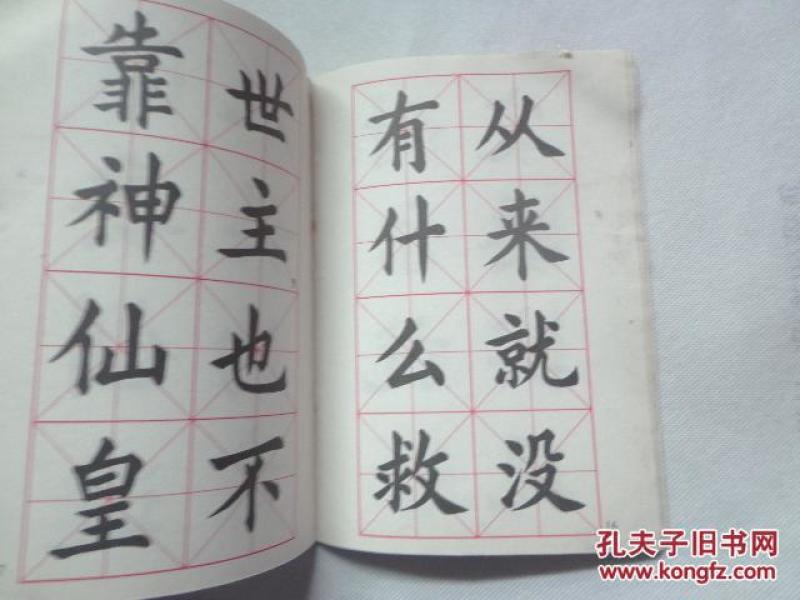 从来就没
有什么救
世主也不
靠神仙皇
16
孔夫子旧书网
www.kongfz.com